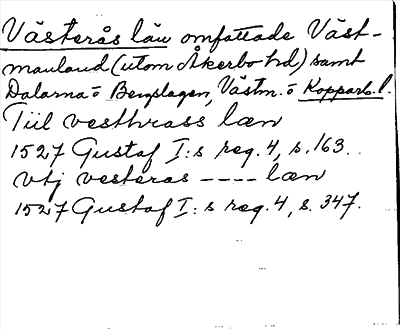 Västerås län omfattade Väst-
manland (utom Åkerbo hd) samt
Dalarna o Bergslagen, Västm. o Kopparb. l.
Tiil vesthrass læn
1527 Gustaf I:s reg. 4, s. 163.
vtj vesteras ---- læn
1527 Gustaf I:s reg. 4, s. 347.